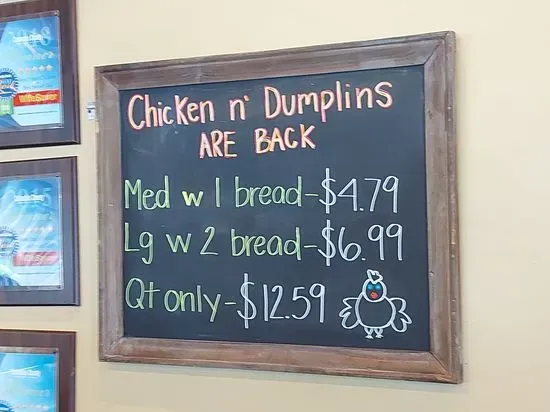 Chicken n' Dumplins
ARE BACK
Med w 1 bread-$4.79
Lg w 2 bread-$6.99
Qt only-$12.59